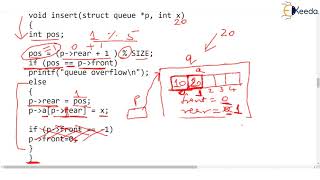 Ekeeda
void insert(struct queue *p, int x)
20
{
int pos; 1 % 5
0 + 1
pos = (p->rear + 1 ) % SIZE;
if (pos == p->front)
printf("queue overflow\n");
else
{ 1
p->rear = pos;
p->a[p->rear] = x;
if (p->front == -1)
p->front=0;
}
}
20
q
a
10 20
0 1 2 3 4
front = 0
rear = 0 1
P